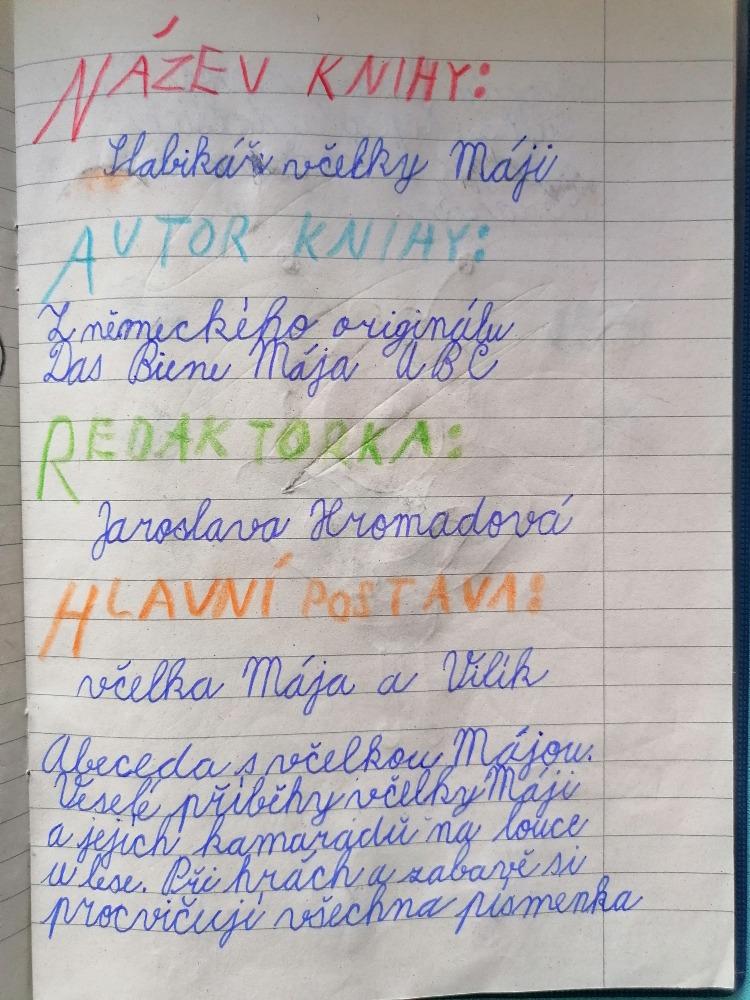 NÁZEV KNIHY:
Slabikář včelky Máji
AUTOR KNIHY:
Z německého originálu
Das Biene Mája ABC
REDAKTORKA:
Jaroslava Hromadová
HLAVNÍ POSTAVA:
včelka Mája a Vilík
Abeceda s včelkou Májou.
Veselé příběhy včelky Máji
a jejich kamarádů na louce
u lese. Při hrách a zabavě si
procvičují všechna písmenka